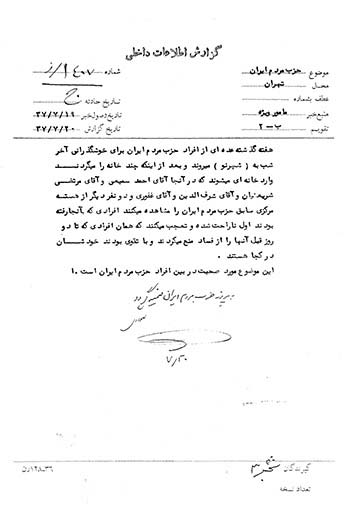 گزارش اطلاعات داخلی
موضوع حزب مردم ایران
شماره ۱۴۰۷/ز
محل تهران
عطف بشماره
تاریخ حادثه
منبع خبر مامور ویژه
تاریخ وصول خبر ۳۷/۷/۱۹
تقویم ب-۲
تاریخ گزارش ۳۷/۷/۲۰
هفته گذشته عده‌ای از افراد حزب مردم ایران برای خوشگذرانی آخر
شب به (شهرنو) میروند و بعد از اینکه چند خانه را میگردند
وارد خانه‌ای میشوند که در آنجا آقای احمد سمیعی و آقای مرتضی
و آقای شرف‌الدین و آقای غفوری و دو نفر دیگر از دسته
مرکزی سابق حزب مردم ایران را مشاهده میکنند افرادی که بآنجا رفته
بودند اول ناراحت شده و تعجب میکنند که همان افرادی که تا دو
روز قبل آنها را از فساد منع میکردند و با تقوی بودند خودشان
در کجا هستند.
این موضوع مورد صحبت در بین افراد حزب مردم ایران است. ا
حزب مردم ایران
۷/۲۰
گیرندگان
تعداد نسخه